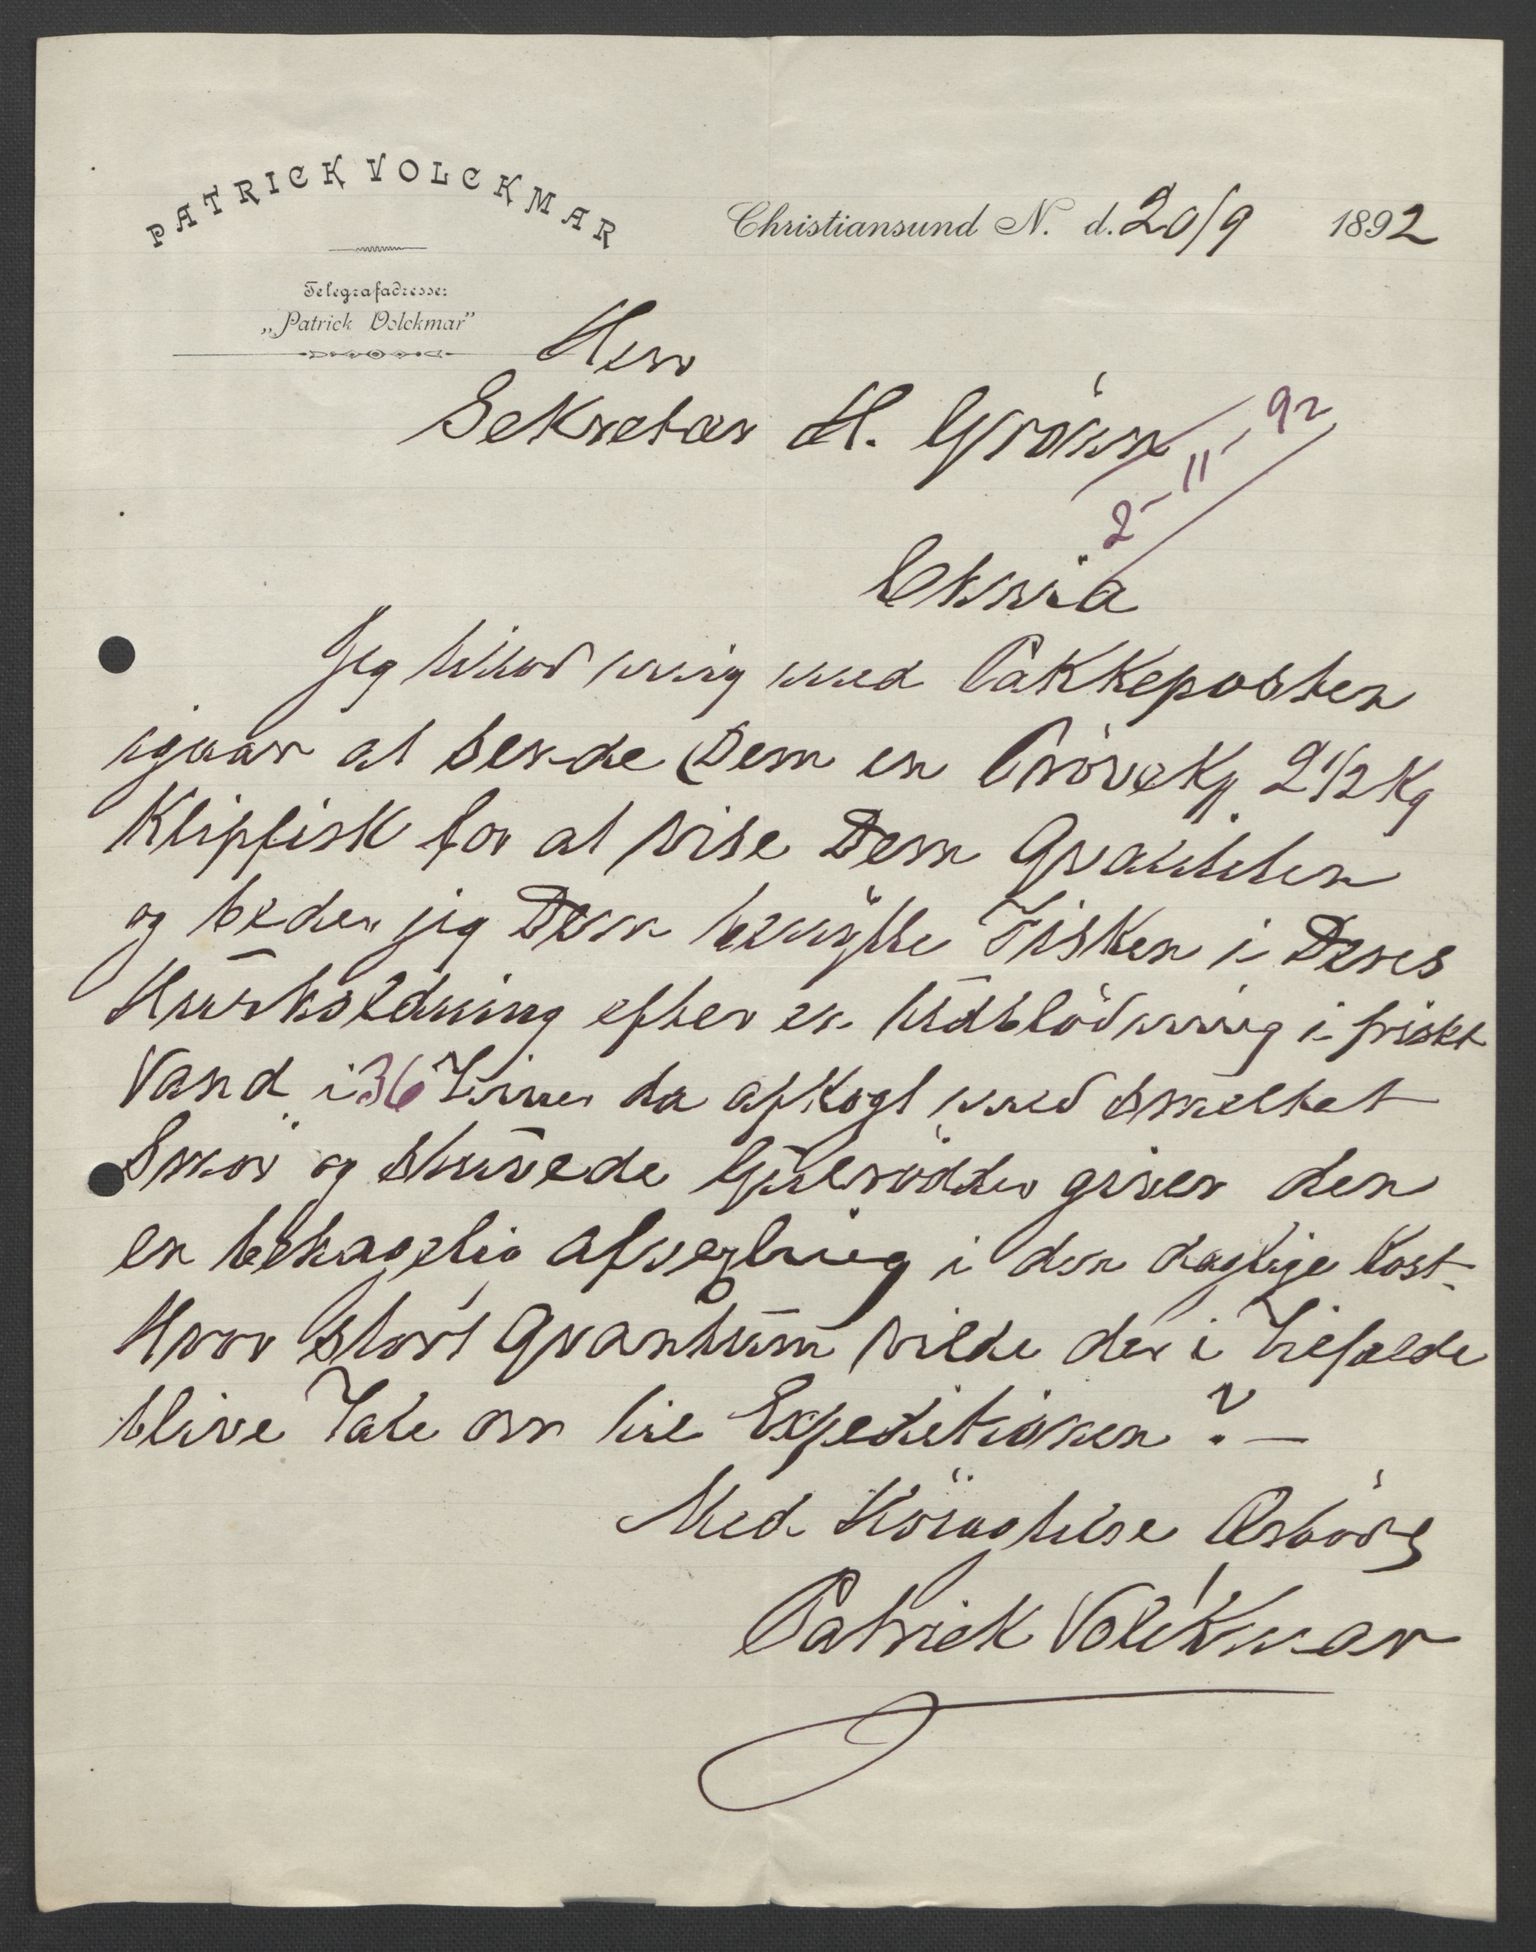 PATRICK VOLCKMAR
Telegrafadresse:
„Patrick Volckmar”
Christiansund N. d. 20/9 1892
Herr
Sekretær H. Grönn
2-11-92
Chnia
Jeg tillod mig med Pakkeposten
igaar at sende Dem en Pröve 2 1/2 Kg
Klipfisk for at vise Dem Qvaliteten
og beder jeg Dem benytte Fisken i Deres
Huusholdning efter en Udblödning i friskt
Vand i 36 Timer da afkogt med smeltet
Smör og stuvede Gulrödder giver den
en behagelig Afvexling i den daglige Kost.
Hvor stort Qvantum vilde der i Tilfælde
blive Tale om til Expeditionen? —
Med Höiagtelse Ærbödg
Patrick Volckmar